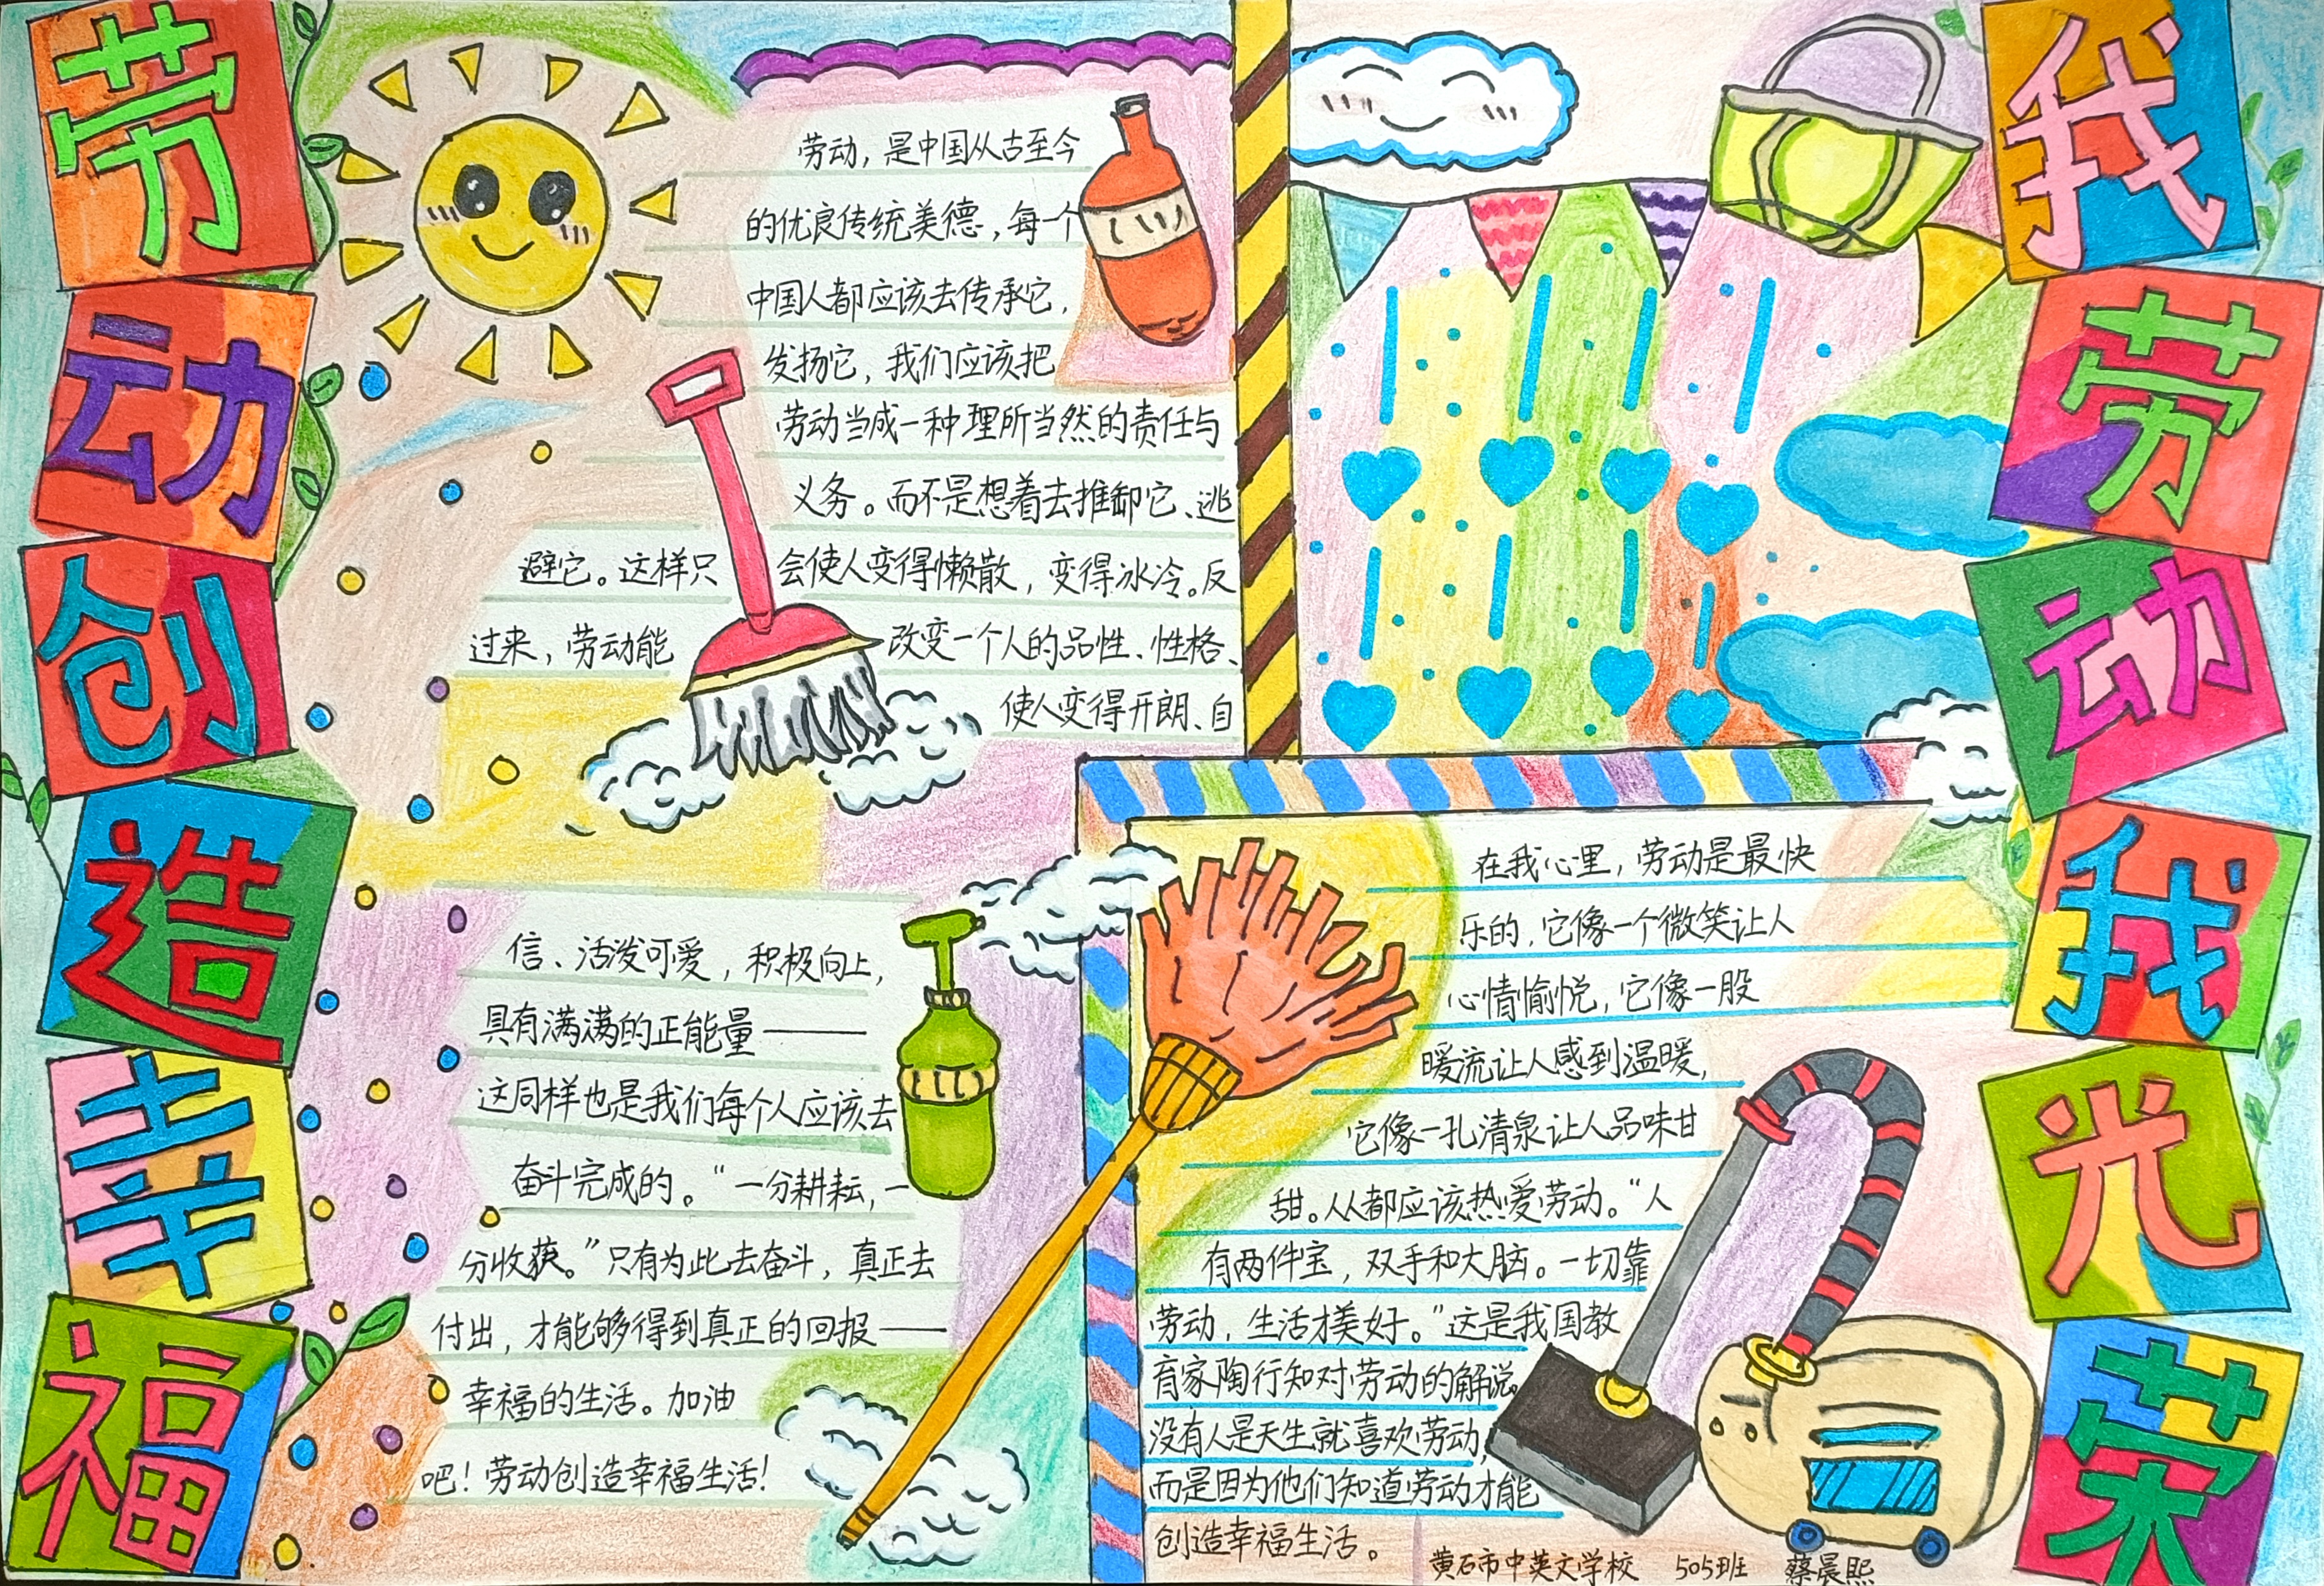 劳动创造幸福
我劳动我光荣
劳动，是中国从古至今
的优良传统美德，每一个
中国人都应该去传承它，
发扬它，我们应该把
劳动当成一种理所当然的责任与
义务。而不是想着去推卸它、逃
避它。这样只会使人变得懒散，变得冰冷。反
过来，劳动能改变一个人的品性、性格、
使人变得开朗、自
信、活泼可爱，积极向上，
具有满满的正能量——
这同样也是我们每个人应该去
奋斗完成的。“一分耕耘，一
分收获。”只有为此去奋斗，真正去
付出，才能够得到真正的回报——
幸福的生活。加油
吧！劳动创造幸福生活！
在我心里，劳动是最快
乐的，它像一个微笑让人
心情愉悦，它像一股
暖流让人感到温暖，
它像一扎清泉让人品味甘
甜。人人都应该热爱劳动。“人
有两件宝，双手和大脑。一切靠
劳动，生活才美好。”这是我国教
育家陶行知对劳动的解说。
没有人是天生就喜欢劳动，
而是因为他们知道劳动才能
创造幸福生活。
黄石市中英文学校 505班 蔡晨熙